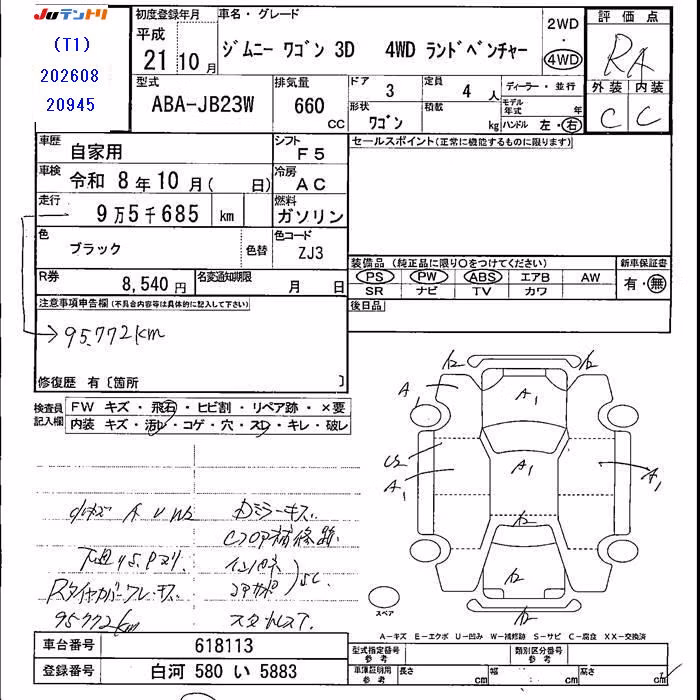 JUテントリ
(T1)
202608
20945
初度登録年月
平成
21 10 月
車名・グレード
ジムニー ワゴン 3D 4WD ランドベンチャー
2WD
・
4WD
評価点
RA
外装 内装
C C
型式
ABA-JB23W
排気量
660
CC
ドア
3
定員
4 人
ディーラー・並行
形状
ワゴン
積載
kg
モデル年式
年
ハンドル 左・右
車歴
自家用
シフト
F5
車検
令和 8 年 10 月( 日)
冷房
AC
走行
9 万 5 千 685 km
燃料
ガソリン
色
ブラック
色替
色コード
ZJ3
R券
8,540 円
名変通知期限
月 日
セールスポイント(正常に機能するものに限ります)
装備品 (純正品に限り○をつけてください)
PS PW ABS エアB AW
SR ナビ TV カワ
新車保証書
有・無
後日品
注意事項申告欄(不具合内容等は具体的に記入して下さい)
95.772km
修復歴 有〔箇所 〕
検査員記入欄
FW キズ・飛石・ヒビ割・リペア跡・×要
内装 キズ・汚レ・コゲ・穴・スレ・キレ・破レ
小キズ A U W2
95.772km
スタッドレスT.
A1
A1
A1
U2
A1
A1
スペア
A－キズ E－エクボ U－凹み W－補修跡 S－サビ C－腐食 XX－交換済
車台番号
618113
登録番号
白河 580 い 5883
型式指定番号
参考
類別区分番号
参考
車庫証明用
参考
長さ
cm
幅
cm
高さ
cm